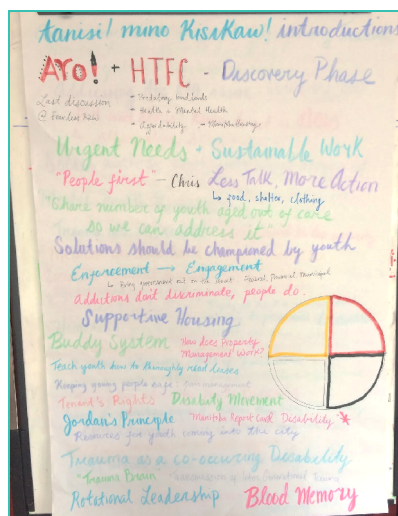 tanisi! mino KisiKaw! introductions
AYO! + HTFC - Discovery Phase
Last discussion
- Health + Mental Health
- Affordability
Urgent Needs + Sustainable Work
"People first" - Chris Less Talk, More Action
↳ food, shelter, clothing
"Share number of youth aged out of care
so we can address it"
Solutions should be championed by youth
Enforcement → Engagement
Addictions don't discriminate, people do.
Supportive Housing
Buddy System
How does Property
Management Work?
Teach youth how to thoroughly read leases
Keeping young people safe:
Tenant's Rights Disability Movement
Jordan's Principle Manitoba Report Card Disability
Resources for youth coming into the city
Trauma as a co-occuring Disability
"Trauma Brain"
Rotational Leadership Blood Memory